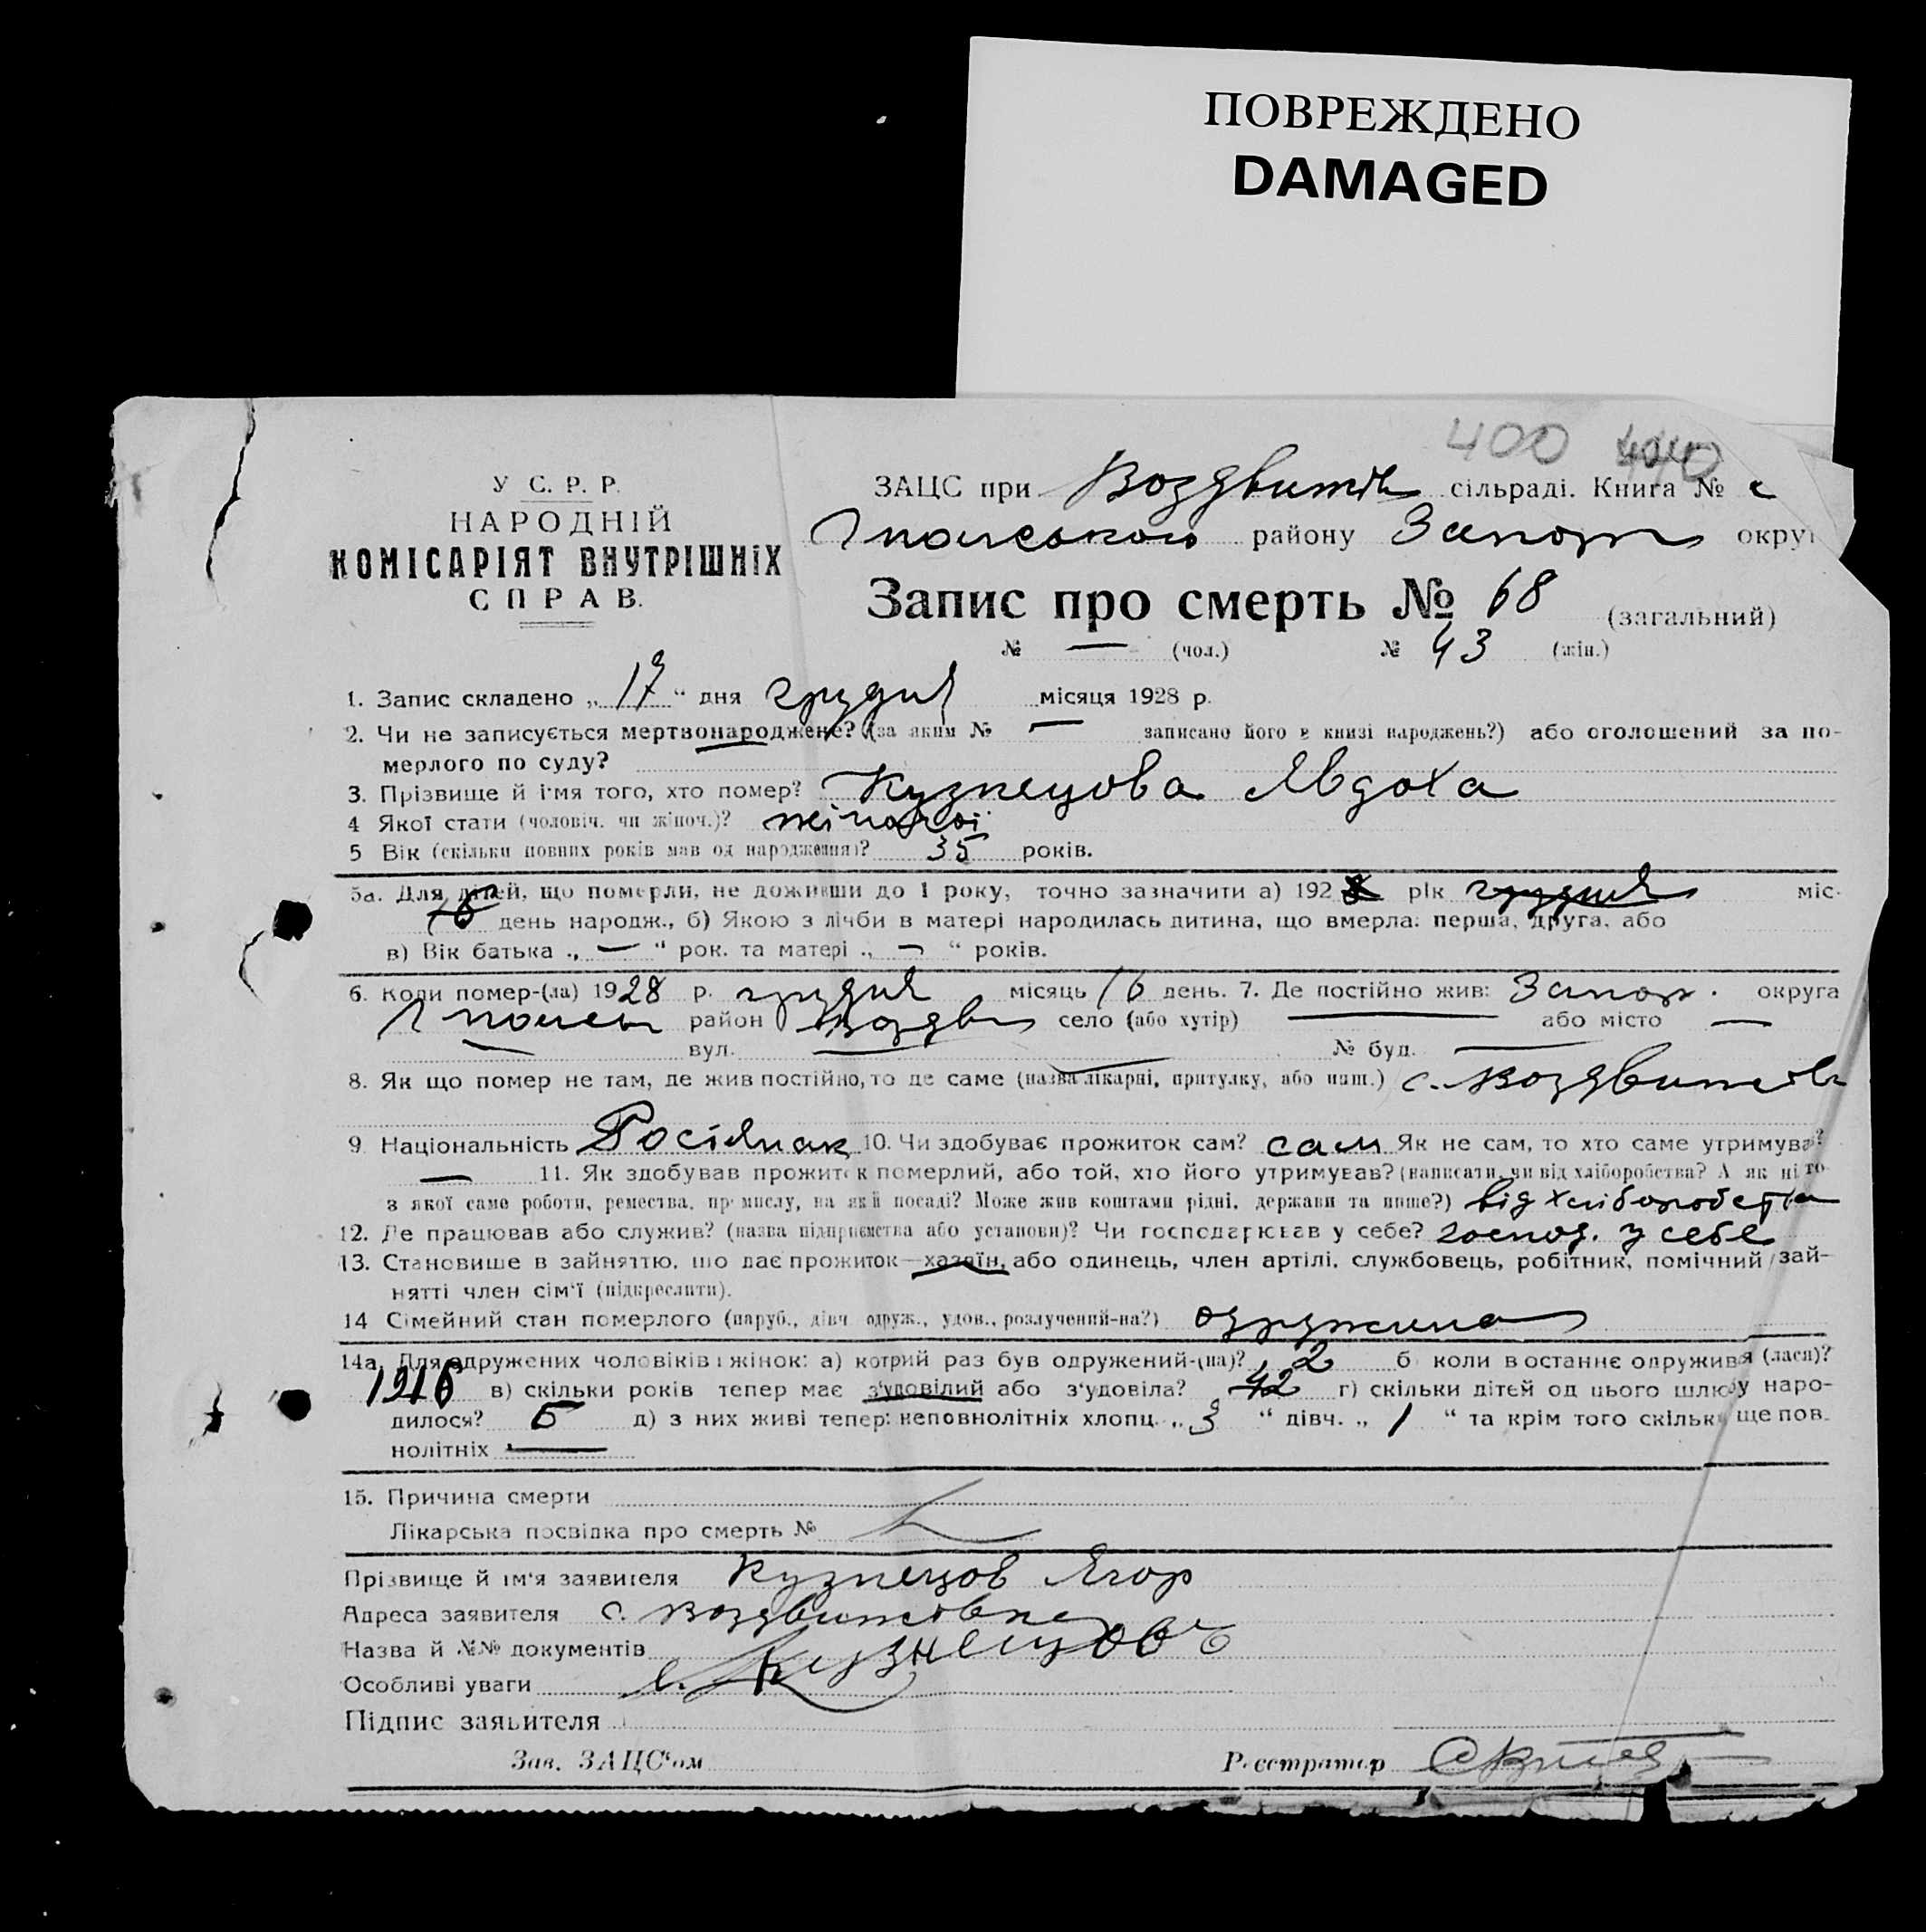 ПОВРЕЖДЕНО
DAMAGED
400 440
У С. Р. Р.
НАРОДНІЙ
КОМІСАРІЯТ ВНУТРІШНІХ
СПРАВ.
ЗАЦС при Воздвижів сільраді. Книга №
району Запор округ
Запис про смерть № 68 (загальний)
№ — (чол.) № 43 (жін.)
1. Запис складено „ 17 “ дня грудня місяця 1928 р.
2. Чи не записується мертвонароджене? (за яким № — записано його в книзі народжень?) або оголошений за по-
мерлого по суду?
3. Прізвище й ім'я того, хто помер? Кузнецова Явдоха
4 Якої стати (чоловіч. чи жіноч.)? жіночої
5 Вік (скільки повних років мав од народження)? 35 років.
5а. Для дітей, що померли, не доживши до 1 року, точно зазначити а) 1928 рік грудня міс.
16 день народж., б) Якою з лічби в матері народилась дитина, що вмерла: перша, друга, або
в) Вік батька „ — “ рок. та матері „ — “ років.
6. Коли помер-(ла) 1928 р. грудня місяць 16 день. 7. Де постійно жив: Запор. округа
район Воздв село (або хутір) — або місто —
— вул. — № буд. —
8. Як що помер не там, де жив постійно, то де саме (назва лікарні, притулку, або инш.) с. Воздвижівк
9 Національність Росіянак 10. Чи здобуває прожиток сам? сам Як не сам, то хто саме утримував?
— 11. Як здобував прожиток померлий, або той, хто його утримував? (написати, чи від хліборобства? А як ні то
з якої саме роботи, ремества, промислу, на якій посаді? Може жив коштами рідні, держави та инше?) від хліборобства
12. Де працював або служив? (назва підприємства або установи)? Чи господарював у себе? господ. у себе
13. Становище в зайняттю, що дає прожиток—хазяїн, або одинець, член артілі, службовець, робітник, помічний зай-
нятті член сім'ї (підкреслити).
14 Сімейний стан померлого (паруб., дівч. одруж., удов., розлучений-на?) одружена
14а. Для одружених чоловіків і жінок: а) котрий раз був одружений-(на)? 2 б) коли востаннє одружився (лася)?
1916 в) скільки років тепер має з'удовілий або з'удовіла? 42 г) скільки дітей од цього шлюбу наро-
дилося? 5 д) з них живі тепер: неповнолітніх хлопц. „ 3 “ дівч. „ 1 “ та крім того скільки ще пов-
нолітніх —
15. Причина смерти
Лікарська посвідка про смерть №
Прізвище й ім'я заявителя Кузнецов Ягор
Адреса заявителя с. Воздвижовка
Назва й №№ документів
Особливі уваги Е. Кузнецовъ
Підпис заявителя
Зав. ЗАЦС'ом Реєстратор